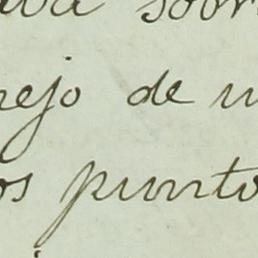 sobr
nejo de u
os punto